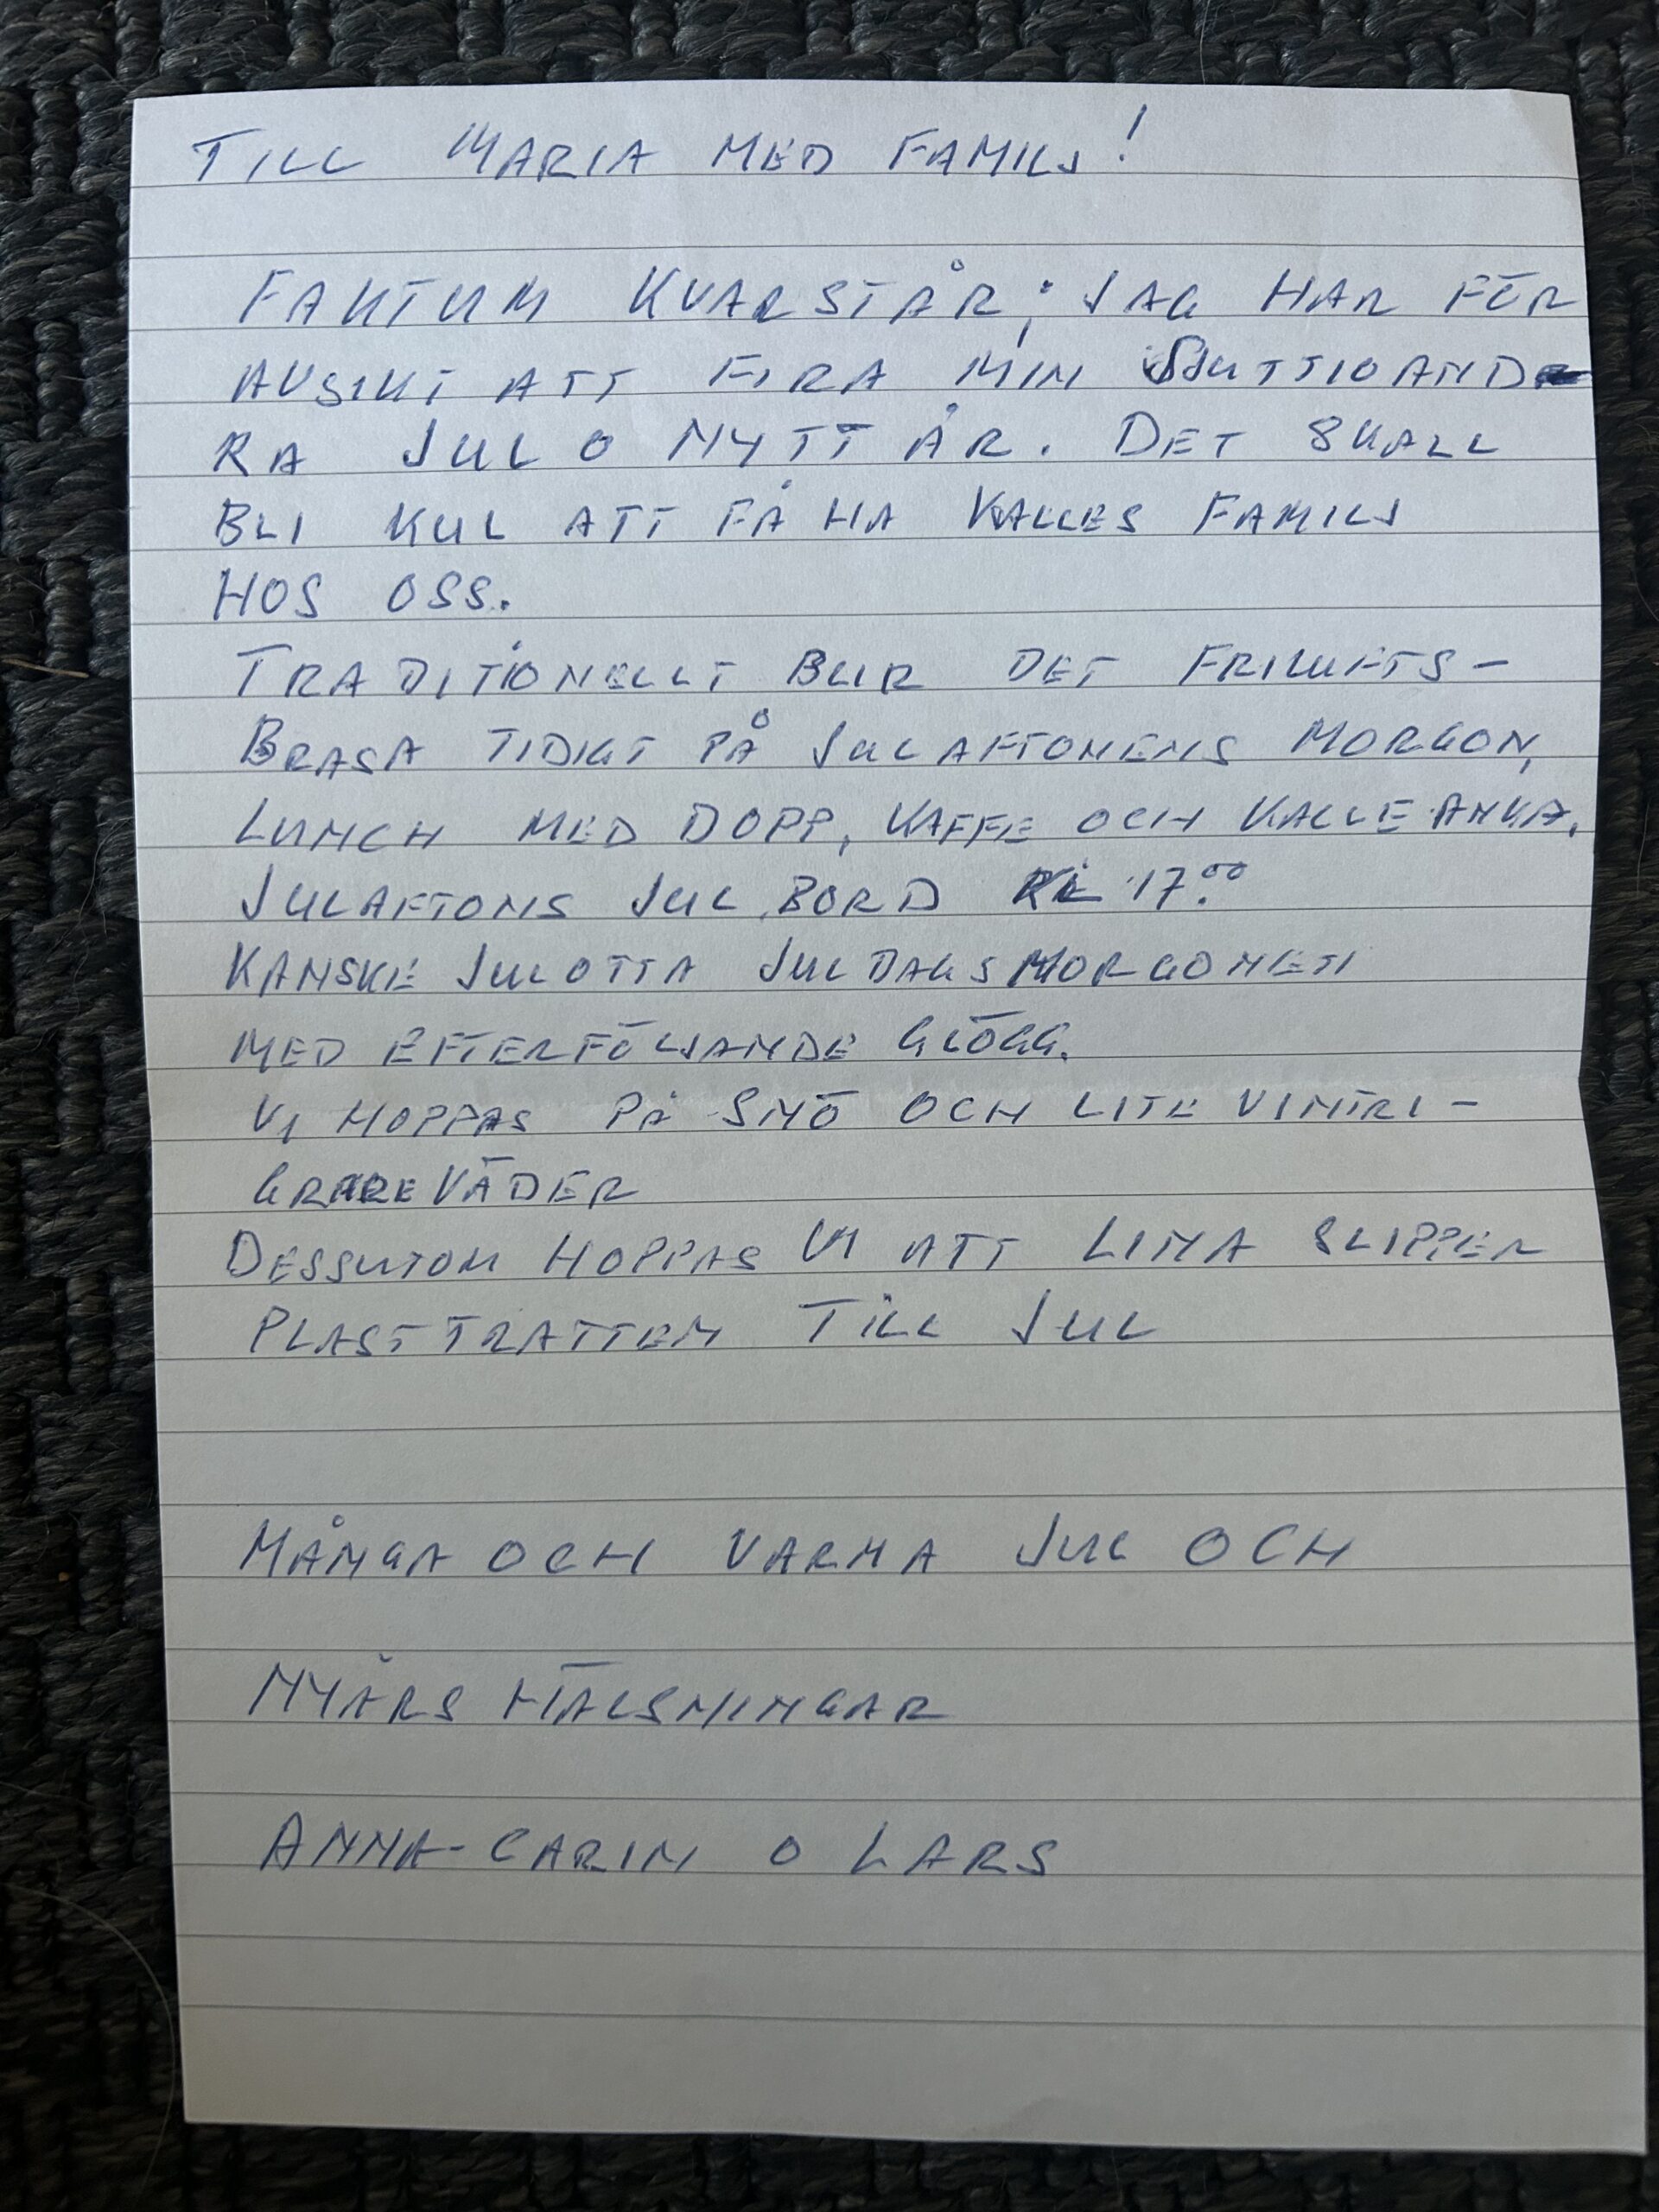 TILL MARIA MED FAMILJ!
FAKTUM KVARSTÅR; JAG HAR FÖR
AVSIKT ATT FIRA MIN SJUTTIOAND
RA JUL O NYTT ÅR. DET SKALL
BLI KUL ATT FÅ HA KALLES FAMILJ
HOS OSS.
TRADITIONELLT BLIR DET FRILUFTS-
BRASA TIDIGT PÅ JULAFTONENS MORGON,
LUNCH MED DOPP, KAFFE OCH KALLE ANKA.
JULAFTONS JUL BORD KL 17.00
KANSKE JULOTTA JULDAGSMORGONEN
MED EFTERFÖLJANDE GLÖGG.
VI HOPPAS PÅ SNÖ OCH LITE VINTRI-
GRARE VÄDER
DESSUTOM HOPPAS VI ATT LINA SLIPPER
PLASTTRATTEN TILL JUL
MÅNGA OCH VARMA JUL OCH
NYÅRS HÄLSNINGAR
ANNA-CARIN O LARS